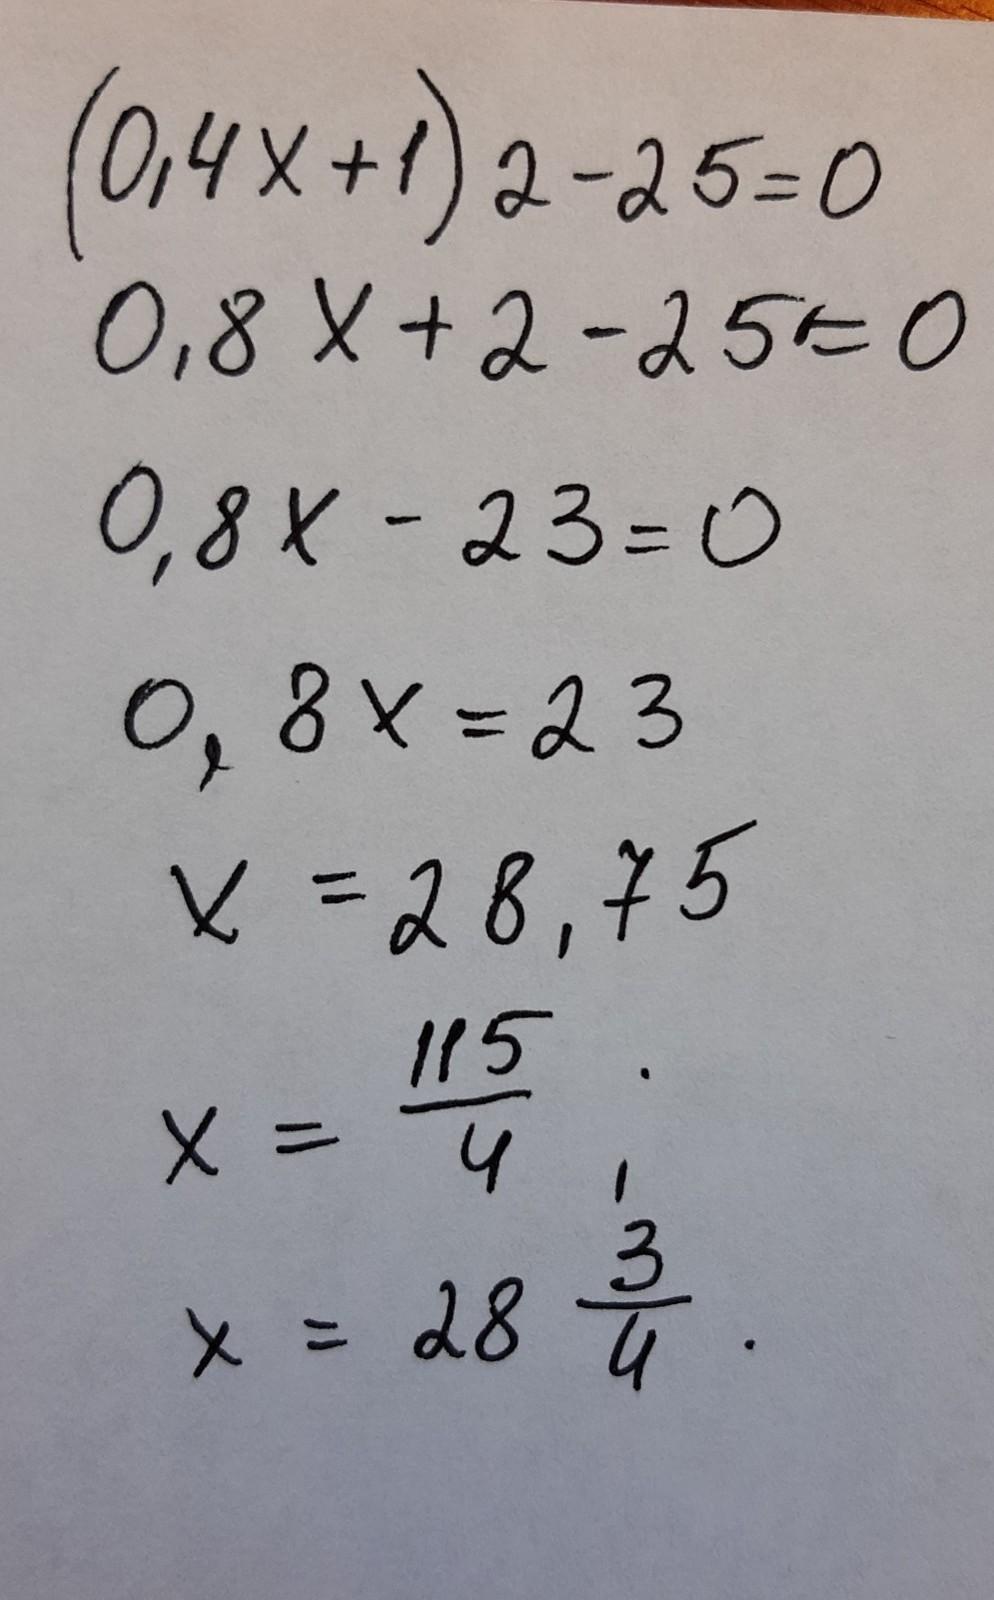 (0,4x+1)2-25=0
0,8x+2-25=0
0,8x-23=0
0,8x=23
x=28,75
x=115/4;
x=28 3/4.